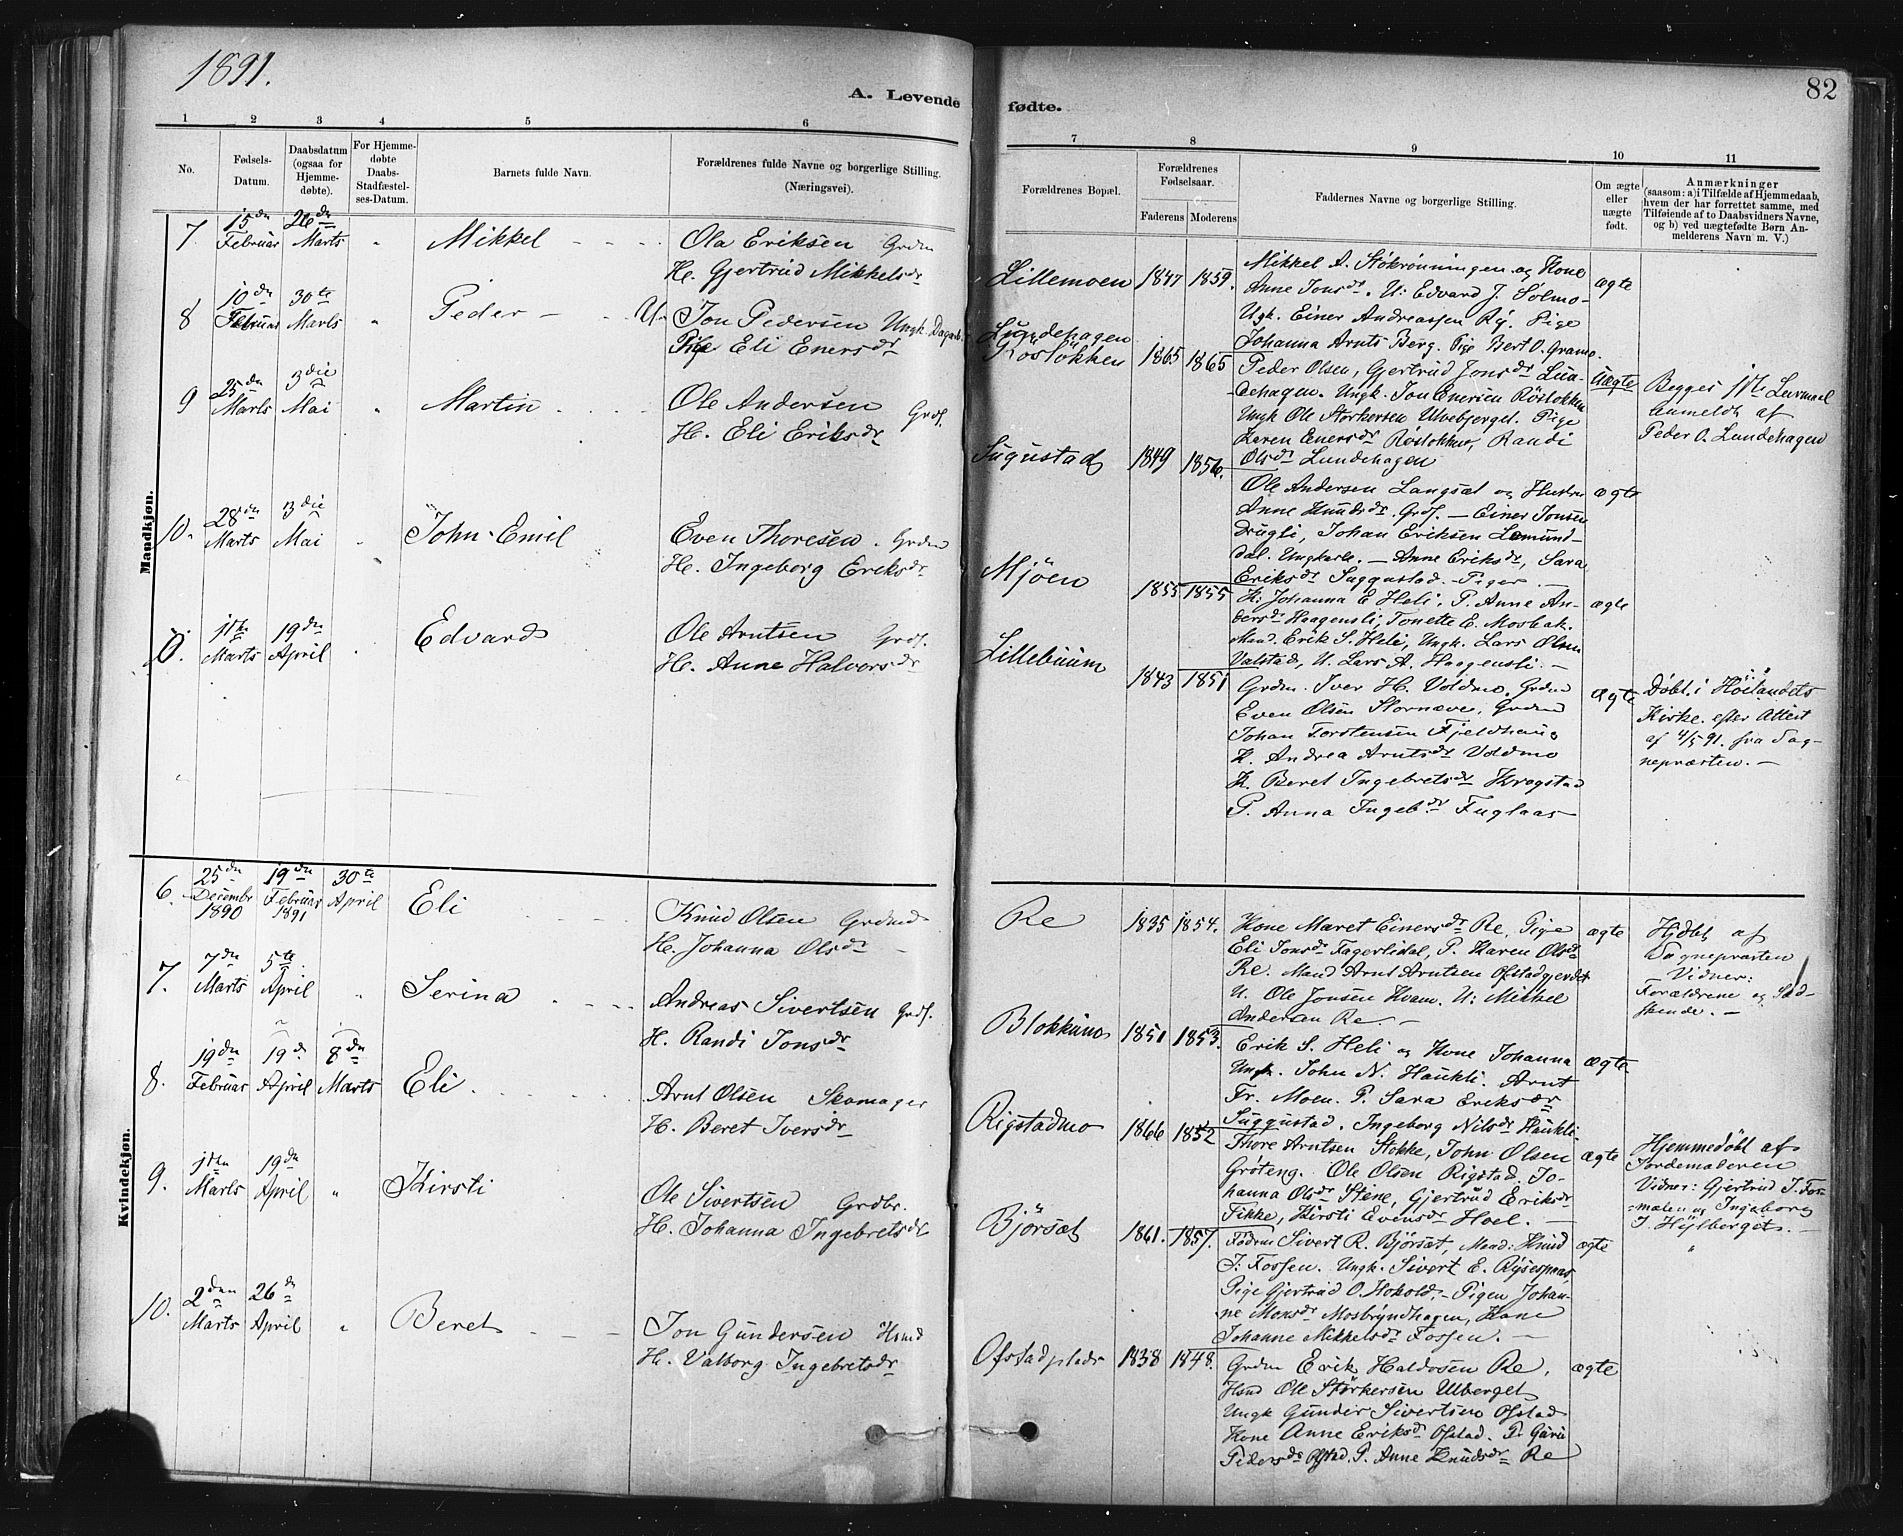 1891.
82
A. Levende
fødte.
1 2 3 4 5 6
7 8 9 10 11
No.
Fødsels-
Datum.
Daabsdatum
(ogsaa for
Hjemme-
døbte).
For Hjemme-
døbte
Daabs-
Stadfæstel-
ses-Datum.
Barnets fulde Navn.
Forældrenes fulde Navne og borgerlige Stilling.
(Næringsvei).
Forældrenes Bopæl.
Forældrenes
Fødselsaar.
Faderens Moderens
Faddernes Navne og borgerlige Stilling.
Om ægte
eller
uægte
født.
Anmærkninger
(saasom: a) i Tilfælde af Hjemmedaab,
hvem der har forrettet samme, med
Tilføiende af to Daabsvidners Navne,
og b) ved uægtefødte Børn An-
melderens Navn m. V.)
Mandkjøn.
7 15de Februar 26de Marts " Mikkel
Ola Eriksen Grdm
H. Gjertrud Mikkelsdr
Lillemoen 1847 1859.
Mikkel A. Stökrönningen og Kone
Anne Jonsdr. U: Edvard J. Solmo
Ungk. Einer Andreassen Ry. Pige
Johanna Arnts Berg. Pige Bert O. Gramo.
ægte
8 10de Februar 30te Marts " Peder
U. Jon Pedersen Ungk.
Pige Eli Enersdr
Lundehagen
Röstökken 1865 1865
Peder Olsen, Gjertrud Jonsdr Lun-
dehagen. Ungk. Jon Enersen Röstokken
Ungk Ole Storkersen Ulvebjerget. Pige
Karen Enersdr Röstokken, Randi
Olsdr Lundehagen
uægte
Begges 1ste Leiermaal
anmeldt af
Peder O. Lundehagen
9 25de Marts 3die Mai " Martin
Ole Andersen Grdf.
H. Eli Eriksdr
Sugustad 1849 1856.
Ole Andersen Langsæt og Hustru
Anne Knudsdr. Grdf. — Einer Jonsen
Drugli, Johan Eriksen Lomund-
dal. Ungkarle. — Anne Eriksdr, Sara
Eriksdr Suggustad. Piger. —
ægte
10. 28de Marts 3die Mai John Emil
Even Thoresen. Grdm
H. Ingeborg Eriksdr
Mjöen 1855 1855
K: Johanna E Heli. P. Anne An-
dersdr Haagensli, Tonette E. Mosbak.
Mand. Erik S. Heli, Ungk. Lars Olsen
Valstad, U. Lars A. Haagensli. —
ægte
11te Marts 19de April Edvard
Ole Arntsen Grdf.
H. Anne Halvorsdr
Lillebuum 1843 1851
Grdm. Iver H. Voldmo. Grdm
Even Olsen Stornæve, Grdm
Johan Torstensen Fjeldhaug
K. Andrea Arntsdr Voldmo
K. Beret Ingebretsdr Krogstad
P. Anna Ingebdr Fuglaas
ægte
Döbt i Höilandets
Kirke. efter Attest
af 4/5 91. fra Sog-
nepræsten. —
Kvindekjøn.
6. 25de Decembr 1890 19de Februar 1891 30te April Eli
Knud Olsen Grdmd
H. Johanna Olsdr
Re 1835 1854.
Kone Maret Einersdr Re, Pige
Eli Jonsdr Fagerlidal, P. Karen Olsdr
Re. Mand Arnt Arntsen Ofstadgjerdet
U. Ole Jonsen Kvam. U: Mikkel
Andersen Re. —
ægte
Hjdbt af
Sognepræsten
Vidner:
Forældrene og
7. 7de Marts 5te April " Serina
Andreas Sivertsen Grdf.
H. Randi Jonsdr
Blokkumo 1851 1853.
Erik S. Heli og Kone Johanna
Ungk. John N. Haukli. Arnt
Fr. Moen. P. Sara Eriksdr
Suggustad, Ingeborg Nilsdr Haukli.
ægte
8. 19de Februar 19de April 8de Marts Eli.
Arnt Olsen Skomager
H. Beret Iversdr
Rigstadmo 1866 1852
Thore Arntsen Stokke, John Olsen
Gröteng. Ole Olsen Rigstad. Jo-
hanna Olsdr Stene, Gjertrud Eriksdr
Fikke, Kirsti Evensdr Hoel. —
ægte
Hjemmedöbt af
Jordemoderen
Vidner: Gjertrud J. Fos-
moen og Ingeborg
J. Höilberget. —
9. 11te Marts 19de April " Kirsti
Ole Sivertsen Grdbr.
H. Johanna Ingebretsdr
Björsæt 1861. 1857.
Födrm Sivert R. Björsæt, Mand: Knud
J. Fossen. Ungk. Sivert E. Rysesmoen
Pige Gjertrud O. Stokold. Pigen Johan-
ne Monsdr Mosbryndhagen, Kone
Johanne Mikkelsdr Fossen. —
ægte "
10. 2den Marts 26de April " Beret
Jon Gundersen Hsmd
H. Valborg Ingebretsdr
Ofstadplads 1838 1848.
Grdm Erik Haldosen Re,
Hsmd Ole Störkersen Ulberget
Ungk Gunder Sivertsen Ofstad
Kone Anne Eriksdr Ofstad. P. Guru
Pedersdr Ofstad. P. Anne Knudsdr Re
ægte